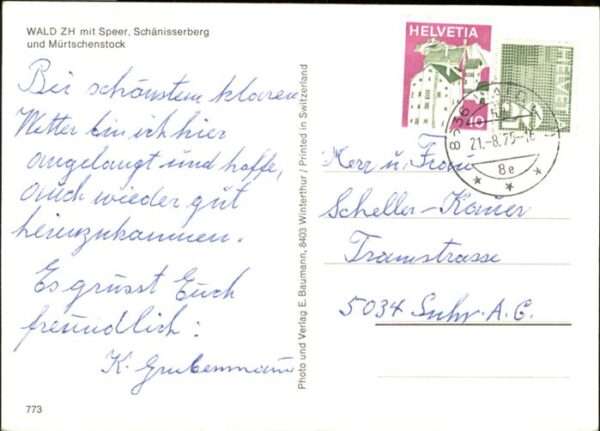 WALD ZH mit Speer, Schänisserberg
und Mürtschenstock
Bei schönstem klaren
Wetter bin ich hier
angelangt und hoffe,
auch wieder gut
heimzukommen.
Es grüsst Euch
freundlich:
K. Grubenmann
773
Photo und Verlag E. Baumann, 8403 Winterthur / Printed in Switzerland
HELVETIA
10
HELVETIA
8636
21.-8.75-18
8e
Herr u. Frau
Scheller-Kaiser
Tramstrasse
5034 Suhr. A.G.